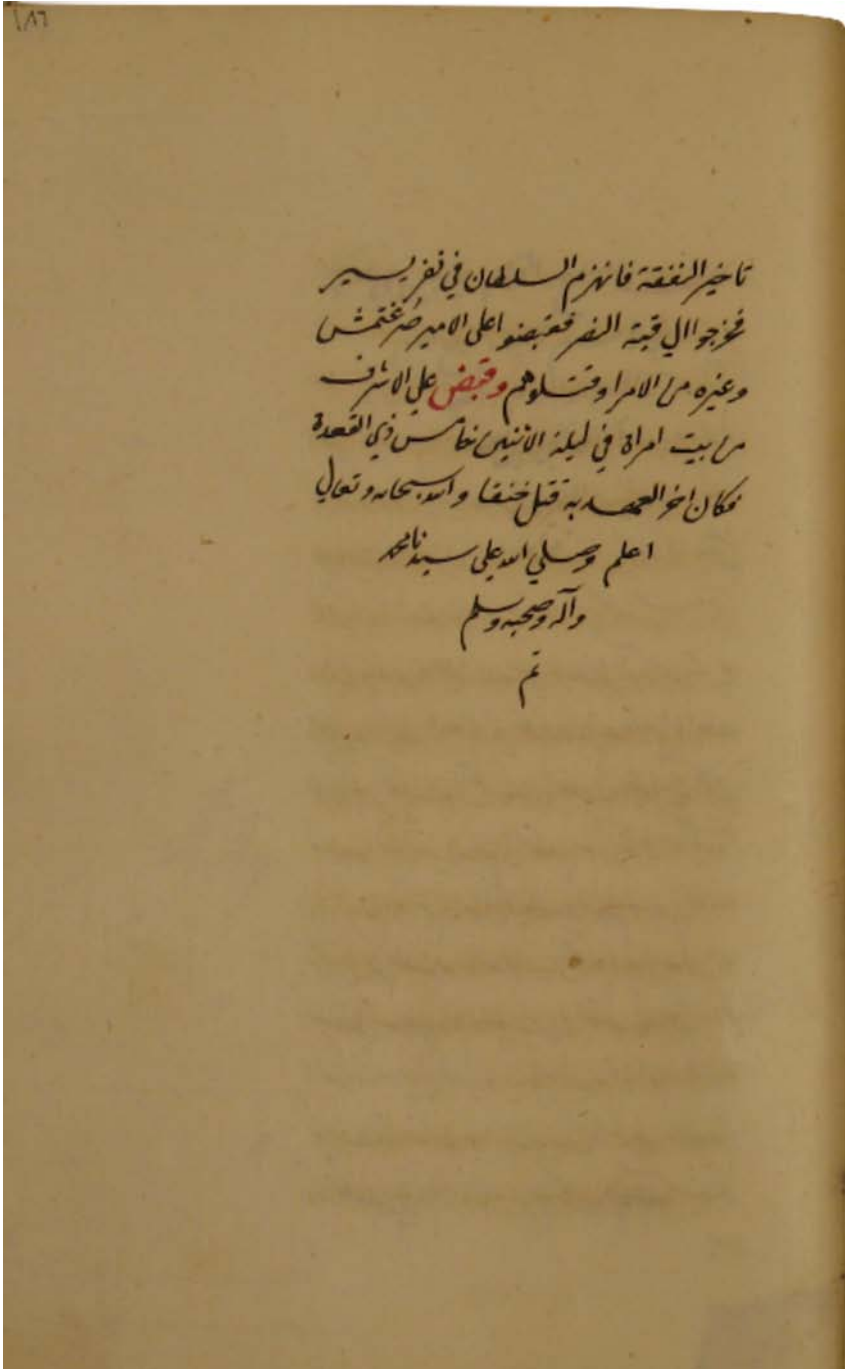 ١٨٦
تاخير النفقة فانهزم السلطان في نفر يسير
فخرجوا الي قبة النصر فقبضوا علي الامير صرغتمش
وغيره من الامرا وقتلوهم وقبض علي الاشرف
من بيت امراة في ليلة الاثنين خامس ذي القعدة
فكان اخر العهد به قتل خنقا والله سبحانه وتعالي
اعلم وصلي الله علي سيدنا محمد
وآله وصحبه وسلم
تم